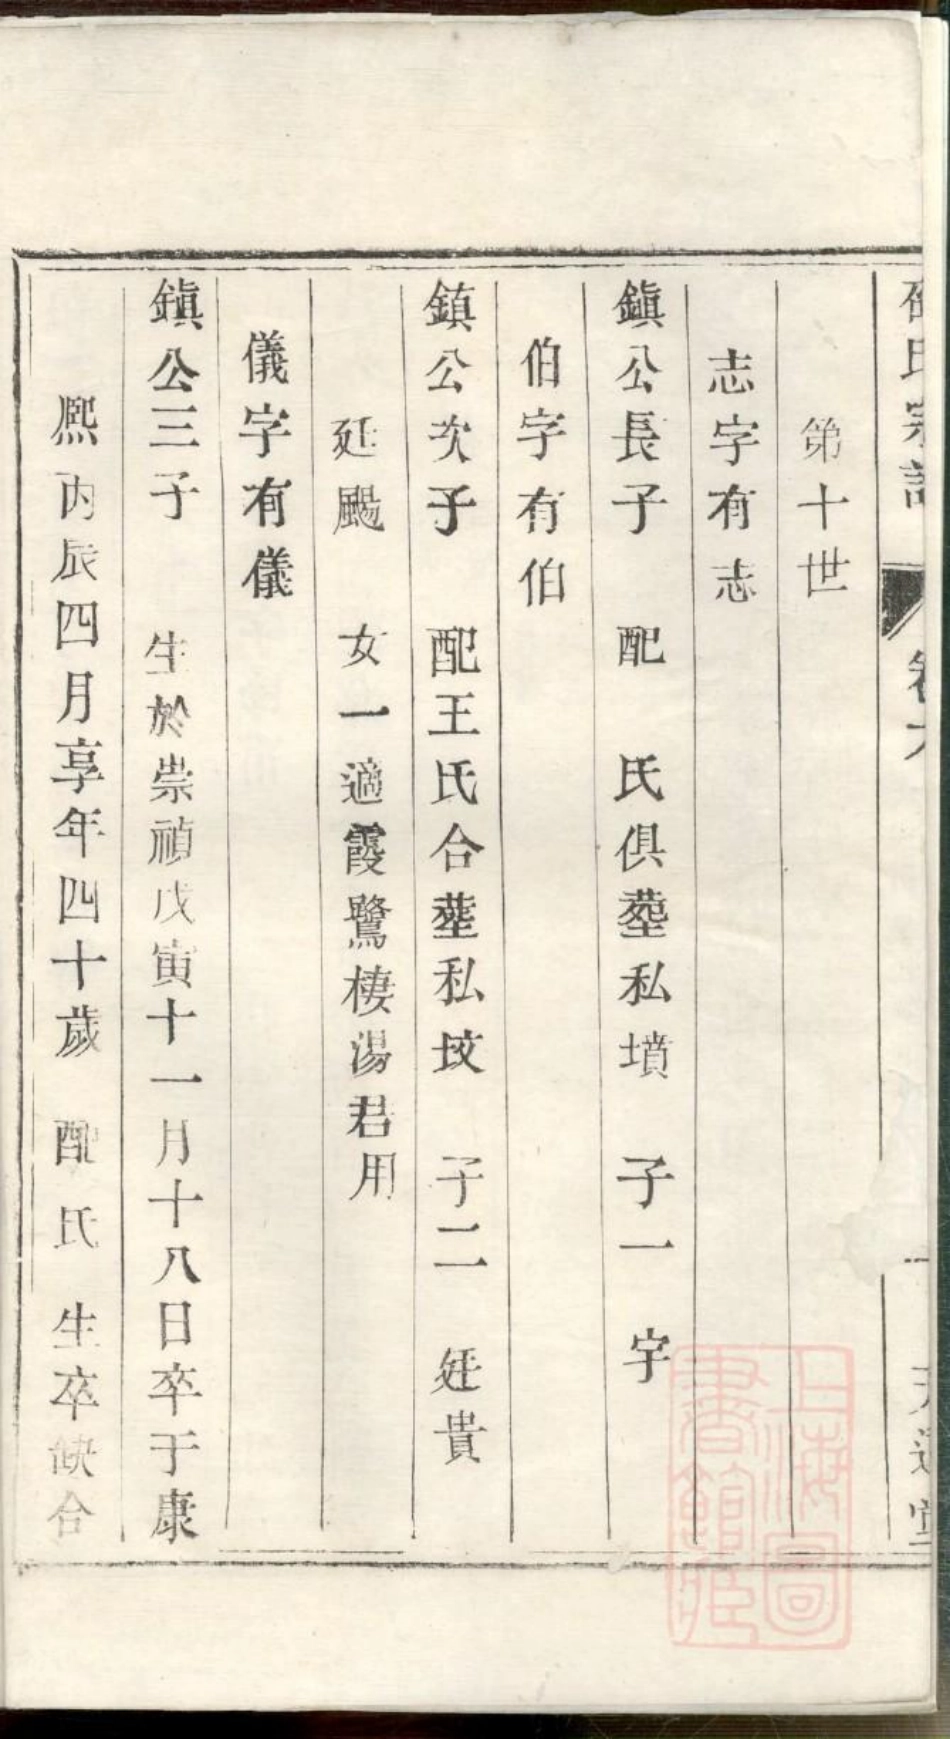 氏宗譜 卷六 一
第十世
志字有志
鎭公長子 配 氏俱塟私墳 子一 字
伯字有伯
鎮公次子 配王氏合塟私坟 子二 廷貴
廷颺 女一適霞鷺棲湯君用
儀字有儀
鎭公三子 生於崇禎戊寅十一月十八日卒于康
熈丙辰四月享年四十歲 配 氏 生卒缺合
上海圖
書館藏